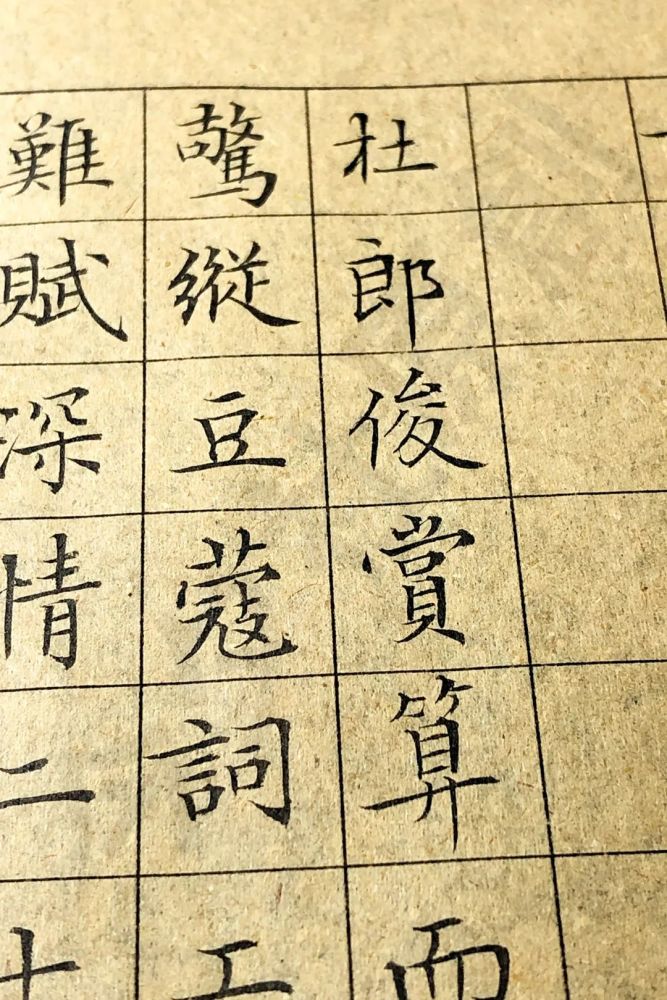 杜郎俊賞算而
驚縱豆蔻詞工
難賦深情二十